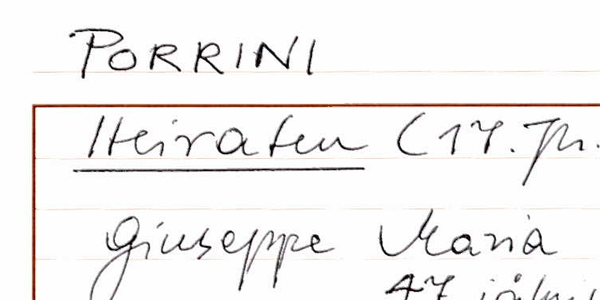 PORRINI
Heiraten (17. Jh.
Giuseppe Maria
47 jähri